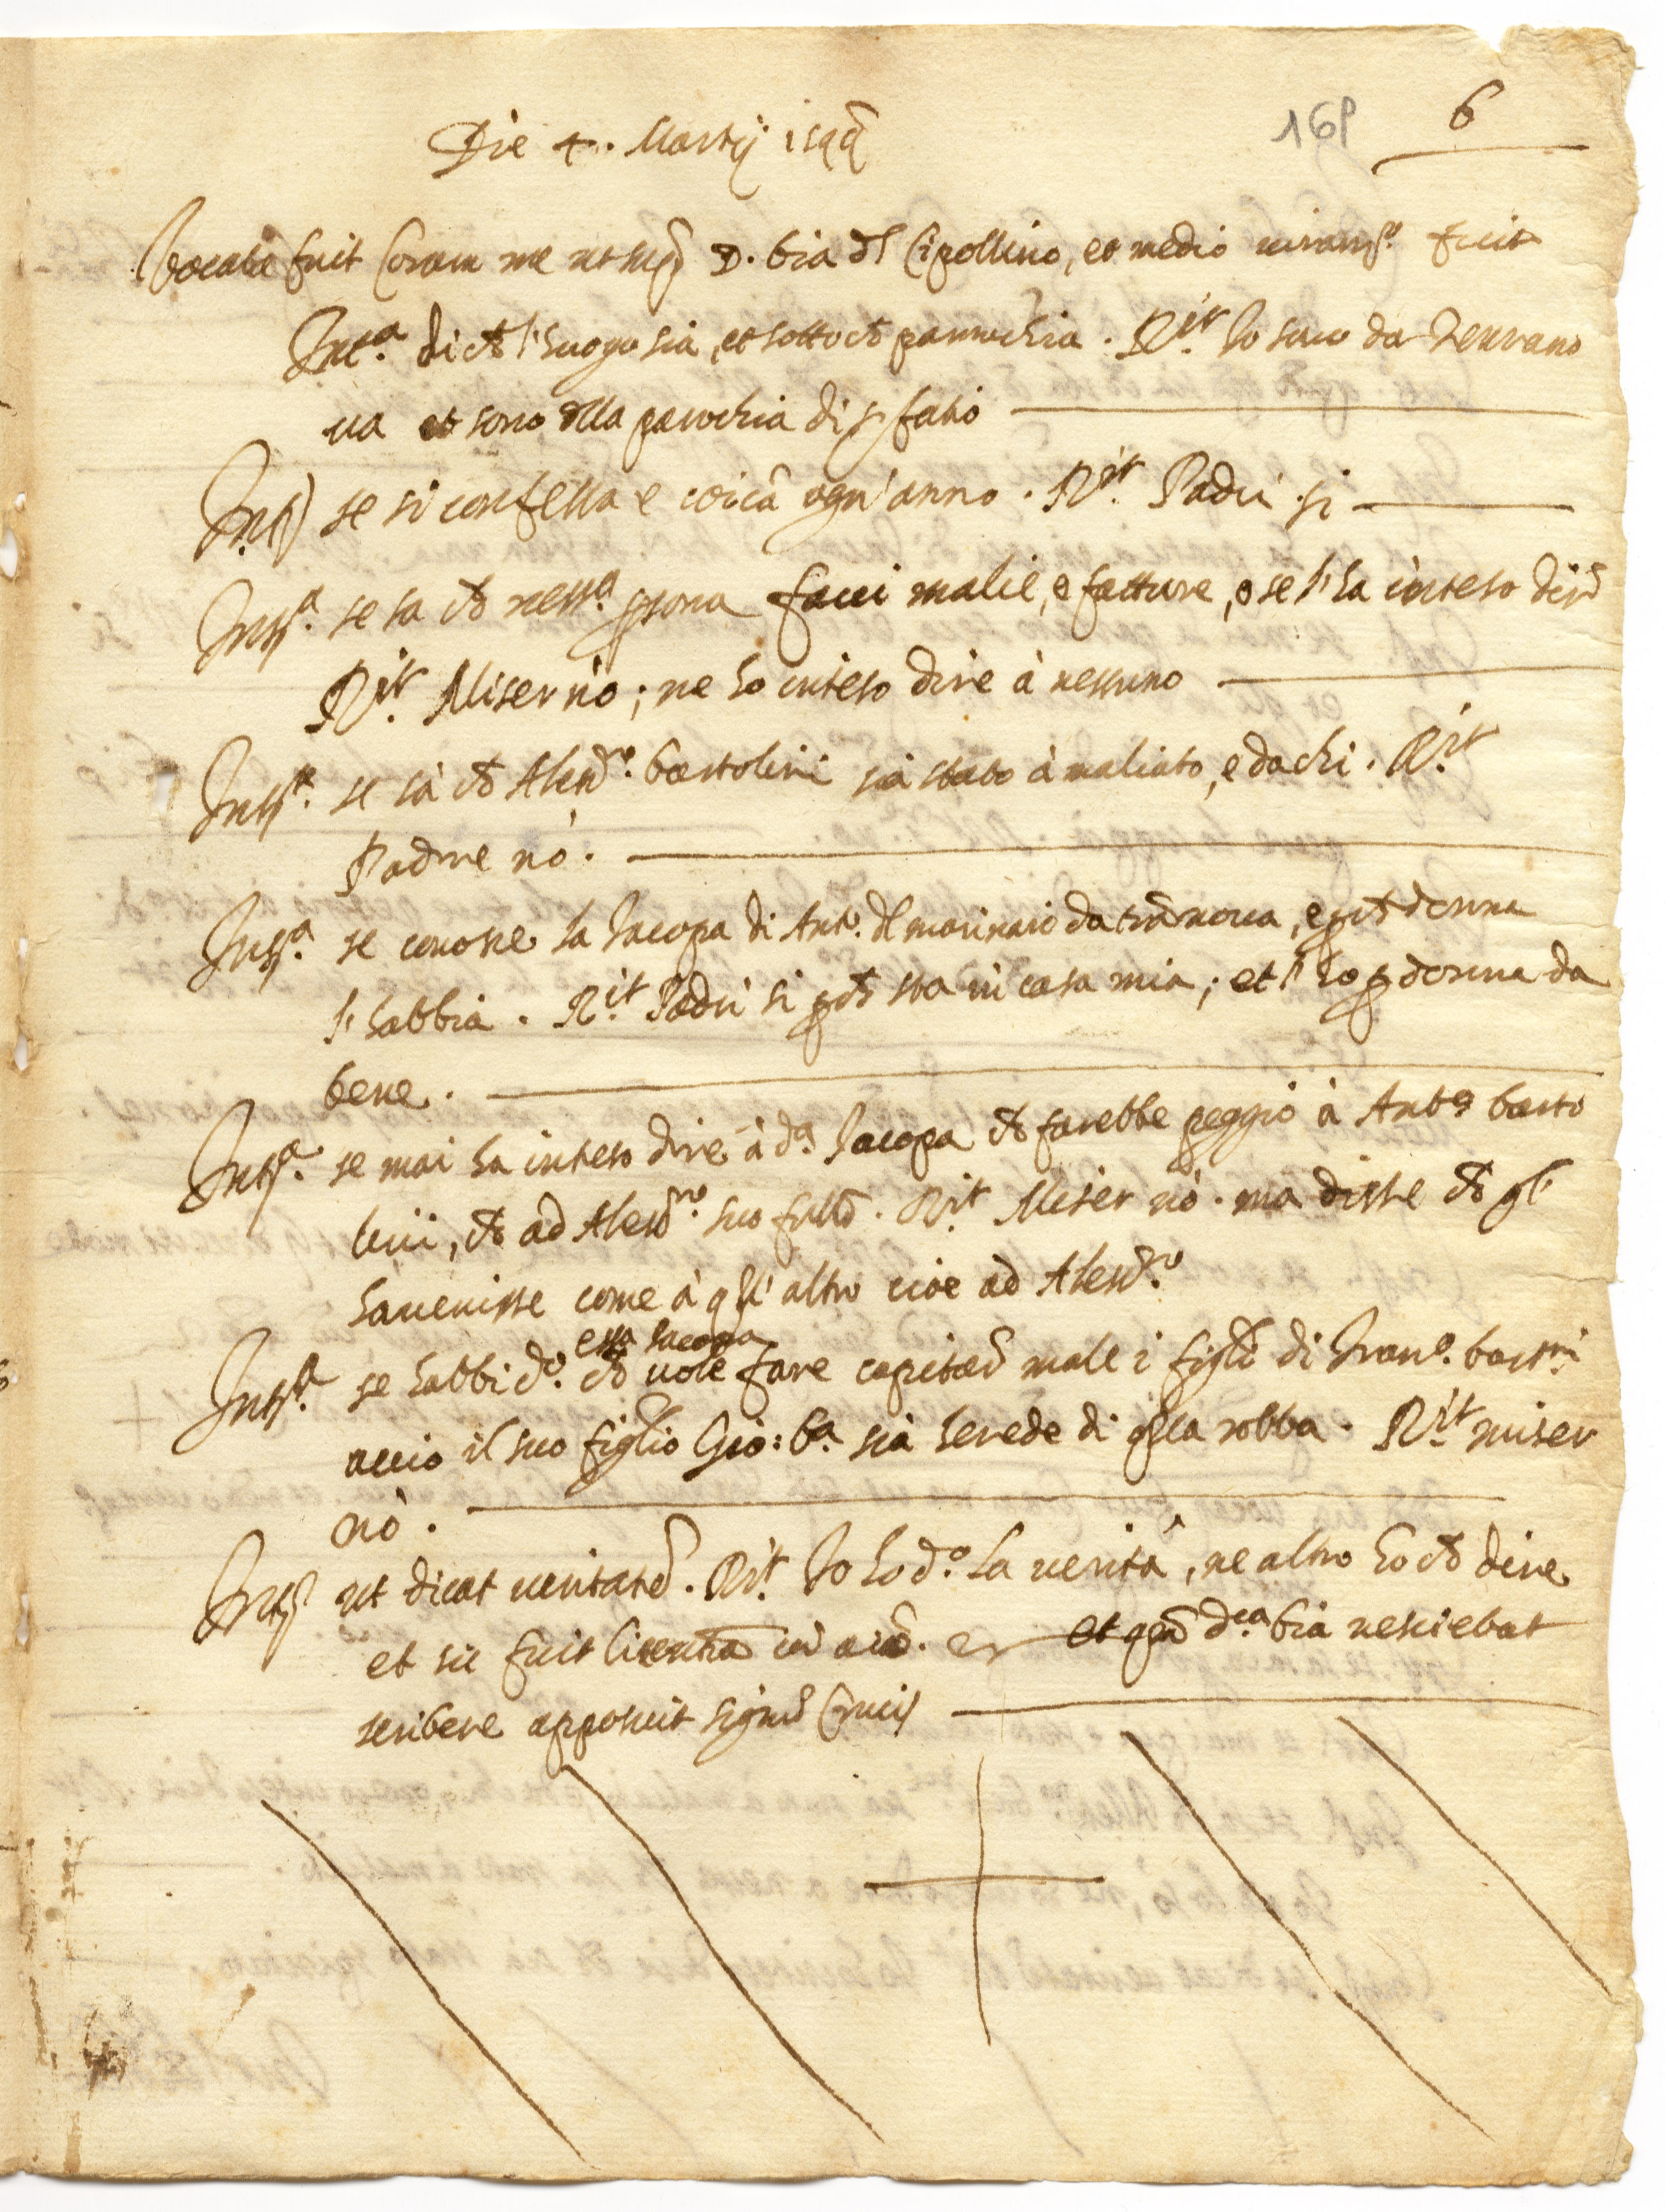 16P 6
Die 4. Martij 1594
Vocata fuit Coram me ut supª D. bia dl Cipollino, et medio iuramto fuit
Intª. di che luogo sia, et sotto che parrochia. Rit. Io sono da Terrano
ua et sono della parochia di s fabo
Int) se si confessa e coĩca ogn'anno. Rit. Padri si
Intª. se sa ch nessª psona facci malie, e fatture, o se l'ha inteso dire
Rit. Miser nò; ne ho inteso dire à nessuno
Intª. se sà ch Alessdro. bartolini sia stato à maliato, e da chi. Rit
Padre nò.
Intª se conosce la Jacopa di Anto. dl marinaio da tranoua, e p ch donna
l'habbia. Rit Padri si pch sta in casa mia; et l'ho p donna da
bene.
Intª. se mai ha inteso dire à dª Jacopa ch farebbe peggio à Anto barto
lini, ch ad Alesdro. suo fratello. Rit Miser nò. ma disse ch gl'
hauenisse come à qll' altro cioe ad Alesdro
Intª. se habbi do. ch essa Jacopa uole fare capitar male i figli di Franco. bartni
accio il suo figlio Gio: bª. sia herede di qlla robba. Rit miser
nò.
Int ut dicat ueritatē. Rit. Io ho do. la verità, ne altro ho ch dire
et sic fuit licentiata cū aiō. er et quā dcª bia nesciebat
scribere apposuit signū Crucis